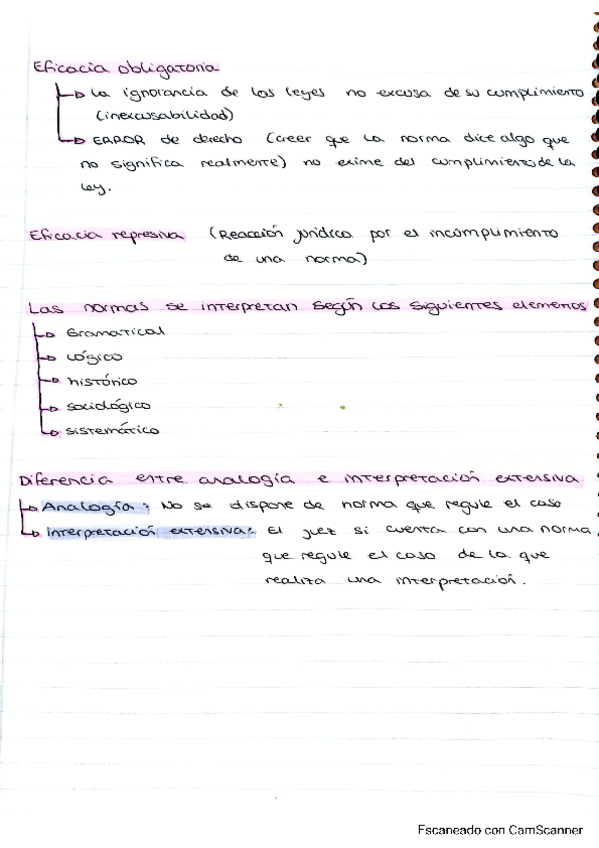 Eficacia obligatoria
La ignorancia de las leyes no excusa de su cumplimiento
(inexcusabilidad)
ERROR de derecho (creer que la norma dice algo que
no significa realmente) no exime del cumplimiento de la
ley.
Eficacia represiva (Reacción jurídica por el incumplimiento
de una norma)
Las normas se interpretan según los siguientes elementos
Gramatical
Lógico
histórico
sociológico
sistemático
Diferencia entre analogía e interpretación extensiva
Analogía: No se dispone de norma que regule el caso
interpretación extensiva: El juez si cuenta con una norma
que regule el caso de la que
realiza una interpretación.
Escaneado con CamScanner